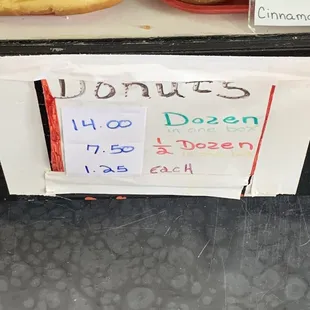 Cinnamo
Donuts
14.00 Dozen
in one box
7.50 1/2 Dozen
1.25 EACH